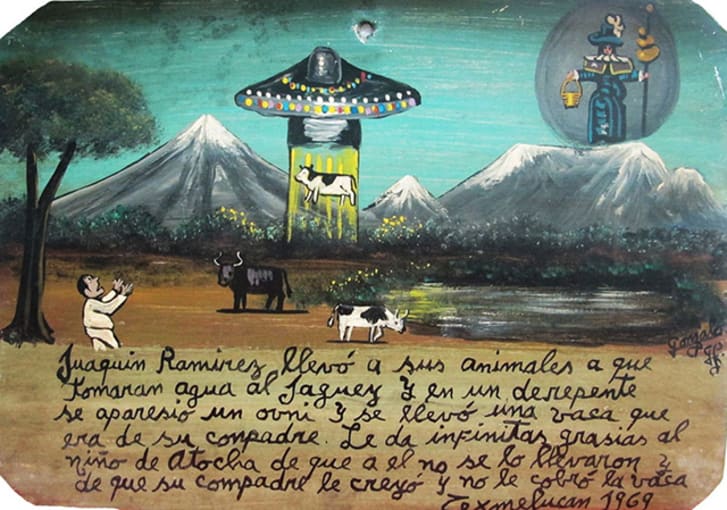 Juaquin Ramirez llevó a sus animales a que
tomaran agua al Jaguey y en un derepente
se aparesió un ovni y se llevó una vaca que
era de su conpadre. Le da infinitas grasias al
niño de Atocha de que a el no se lo llevaron y
de que su compadre le creyó y no le cobró la vaca
Texmelucan 1969